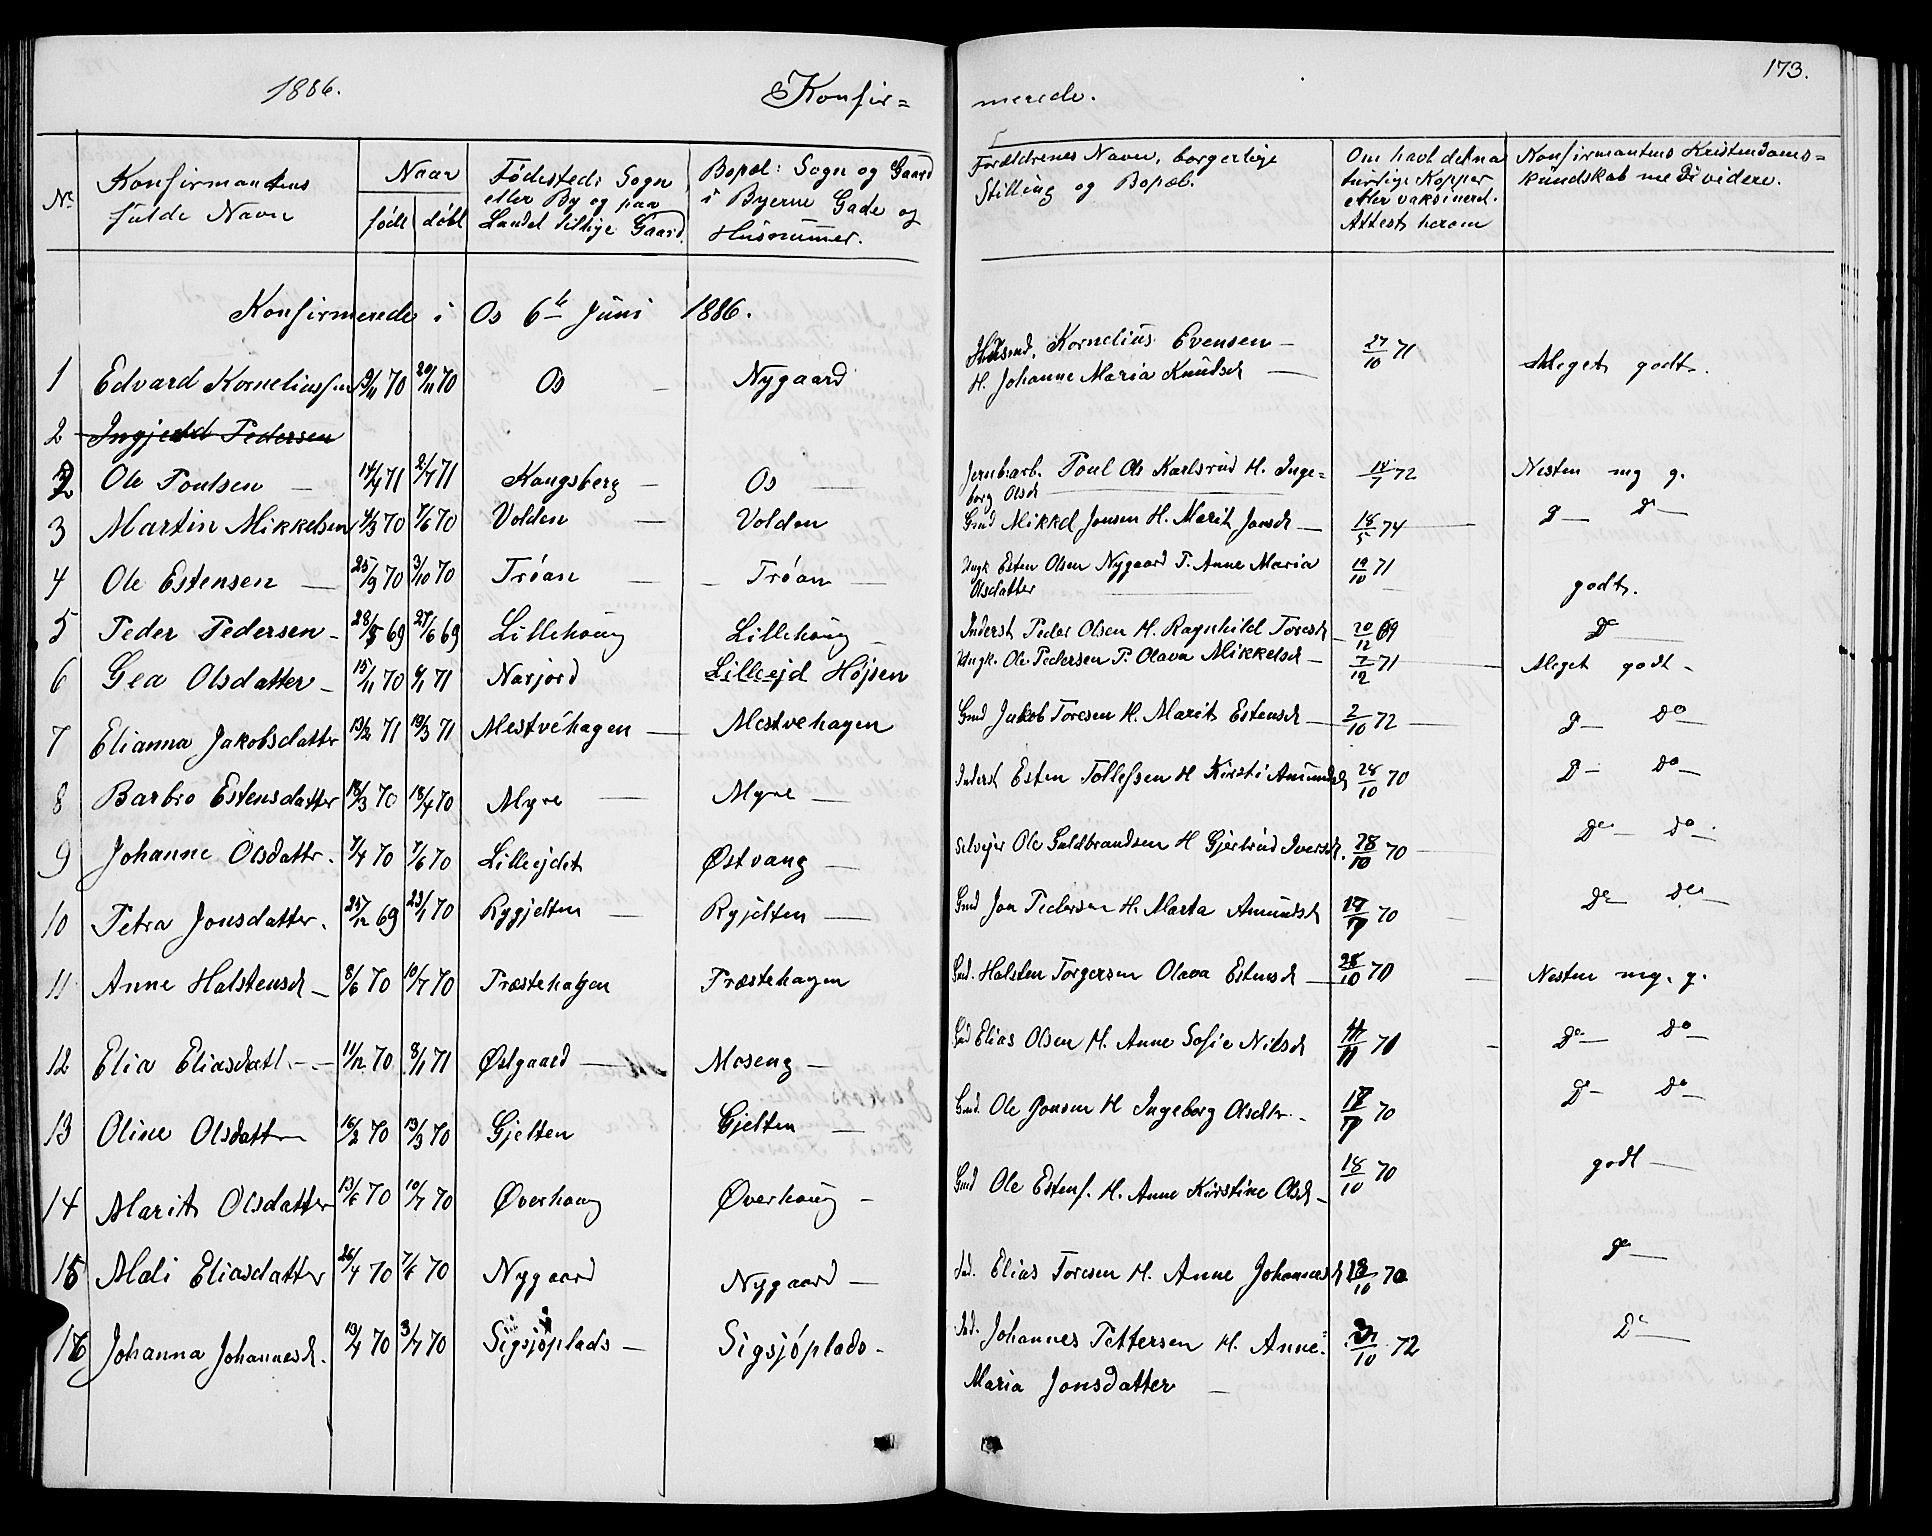 173.
1886. Konfir= merede.
Nr. Konfirmantens fulde Navn
Naar født døbt
Fødested: Sogn eller By og paa Landet tillige Gaard.
Bopæl: Sogn og Gaard i Byerne Gade og Husnummer.
Forældrenes Navn, borgerlige Stilling og Bopæl.
Om havt de naturlige Kopper eller vaksineret. Attest herom
Konfirmantens Kristendoms= kundskab med videre.
Konfirmerede i Os 6te Juni 1886.
1 Edvard Korneliussen 9/11 70 20/11 70 Os — Nygaard Husmd. Kornelius Evensen — H. Johanne Maria Knudsd — 27/10 71 Meget godt.
2 Ingjeld Pedersen
2 Ole Poulsen — 14/4 71 2/7 71 Kongsberg — Os — Jernbarb. Poul Ols Karlsrud H. Inge= borg Olsd 14/7 72 Nesten mg g.
3 Martin Mikkelsen 4/3 70 7/6 70 Volden — Volden Gmd Mikkel Jonsen H. Marit Jonsd — 18/5 74 D — Do —
4 Ole Estensen — 25/9 70 3/10 70 Trøan — Trøan — Ungk Esten Olsen Nygaard P. Anne Maria Olsdatter 19/10 71 godt.
5 Peder Pedersen — 28/5 69 27/6 69 Lillehoug Lillehoug — Inderst Peder Olsen H. Ragnhild Toresd — 20/12 69 Do —
6 Gea Olsdatter — 15/11 70 6/1 71 Narjord Lilleejd Højsen Ungk. Ole Pedersen P. Olava Mikkelsd — 7/12 71 Meget godt —
7 Elianna Jakobsdatter 13/2 71 19/3 71 Mestvehagen — Mestvehagen Gmd Jakob Toresen H. Marit Estensd — 2/10 72 — D — Do —
8 Barbro Estensdatter 18/3 70 18/4 70 Myre — Myre — Inderst Esten Tollefsen H Kirsti Amundsd 28/10 70 D — Do —
9 Johanne Olsdattr. 7/4 70 7/6 70 Lilleejdet Østvang — Selvejer Ole Guldbrandsen H Gjertrud Iversd. 28/10 70 Do — Do —
10 Petra Jonsdatter. 25/12 69 23/1 70 Rygjelten — Ryjelten — Gmd Jon Pedersen H. Marta Amundsd 17/7 70 Do — Do —
11 Anne Halstensd — 8/6 70 10/7 70 Præstehagen Præstehagen Gmd. Halsten Torgersen Olava Estensd — 28/10 70 — Nesten mg. g.
12 Elia Eliasdatt. — 11/12 70 8/1 71 Østgaard — Moseng — Gmd Elias Olsen H. Anne Sofie Nilsd 11/11 71 — Do — Do —
13 Oline Olsdatter 16/2 70 13/3 70 Gjelten Gjelten — Gmd. Ole Jonsen H Ingeborg Olsdtr. 18/7 70 D — Do —
14 Marit Olsdatter 13/6 70 10/7 70 Øverhoug Øverhoug — Gmd Ole Estens. H. Anne Kirstine Olsd — 18/10 70 godt —
15 Mali Eliasdatter 26/4 70 7/6 70 Nygaard Nygaard — Ind. Elias Toresen H. Anne Johannesd 18/10 70 Do —
16 Johanna Johannesd. 19/4 70 3/7 70 Sigsjøplads — Sigsjøplads. Ind. Johannes Pettersen H. Anne= Maria Jonsdatter — /10 72 Do —